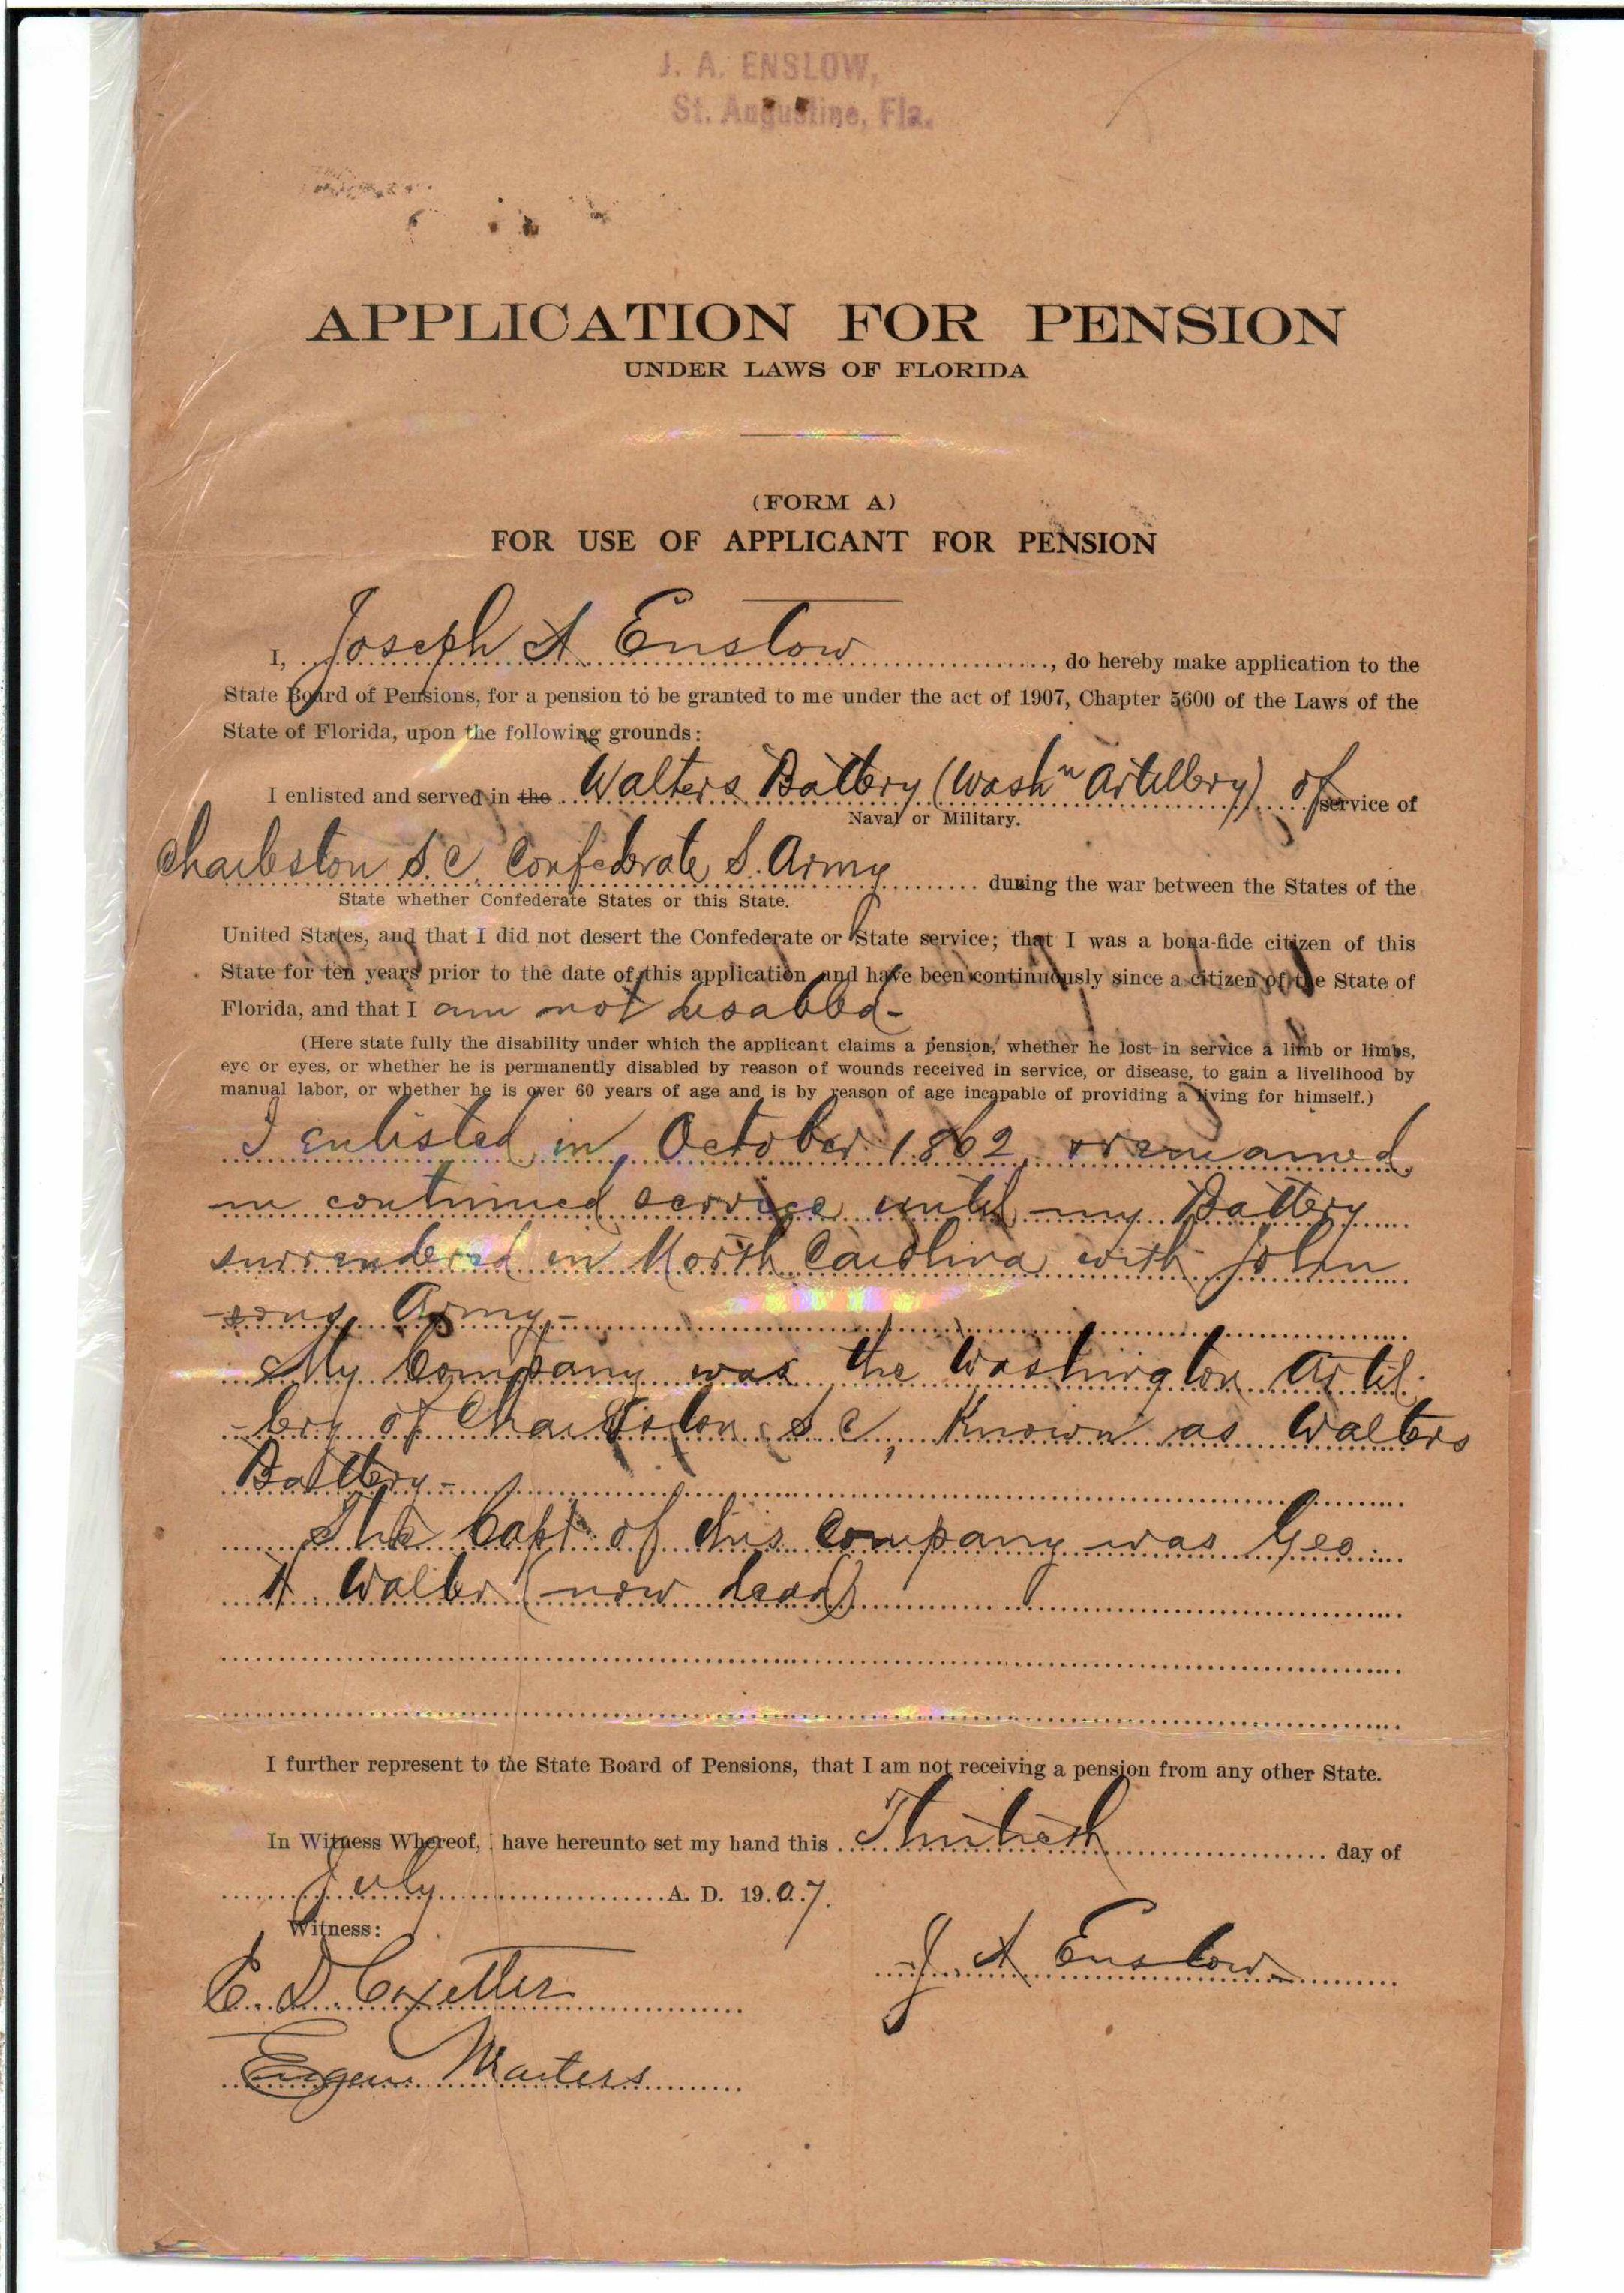 J. A. ENSLOW,
St. Augustine, Fla.
APPLICATION FOR PENSION
UNDER LAWS OF FLORIDA
(FORM A)
FOR USE OF APPLICANT FOR PENSION
I, Joseph A Enslow, do hereby make application to the
State Board of Pensions, for a pension to be granted to me under the act of 1907, Chapter 5600 of the Laws of the
State of Florida, upon the following grounds:
I enlisted and served in the Walters Battery (Wash n Artillery) of service of
Naval or Military.
Charleston S.C. Confederate S. Army during the war between the States of the
State whether Confederate States or this State.
United States, and that I did not desert the Confederate or State service; that I was a bona-fide citizen of this
State for ten years prior to the date of this application and have been continuously since a citizen of the State of
Florida, and that I am not disabled-
(Here state fully the disability under which the applicant claims a pension, whether he lost in service a limb or limbs,
eye or eyes, or whether he is permanently disabled by reason of wounds received in service, or disease, to gain a livelihood by
manual labor, or whether he is over 60 years of age and is by reason of age incapable of providing a living for himself.)
I enlisted in October 1862, & remained
in continued service until my Battery
surrendered in North Carolina with John
-sons Army-
My Company was the Washington Artil-
-lery of Charleston S C, Known as Walters
Battery-
The Capt of this Company was Geo
H Walter (now dead)
I further represent to the State Board of Pensions, that I am not receiving a pension from any other State.
In Witness Whereof, I have hereunto set my hand this Thirtieth day of
July A. D. 1907.
Witness:
J A Enslow
E. D. Coxetter
Eugene Masters